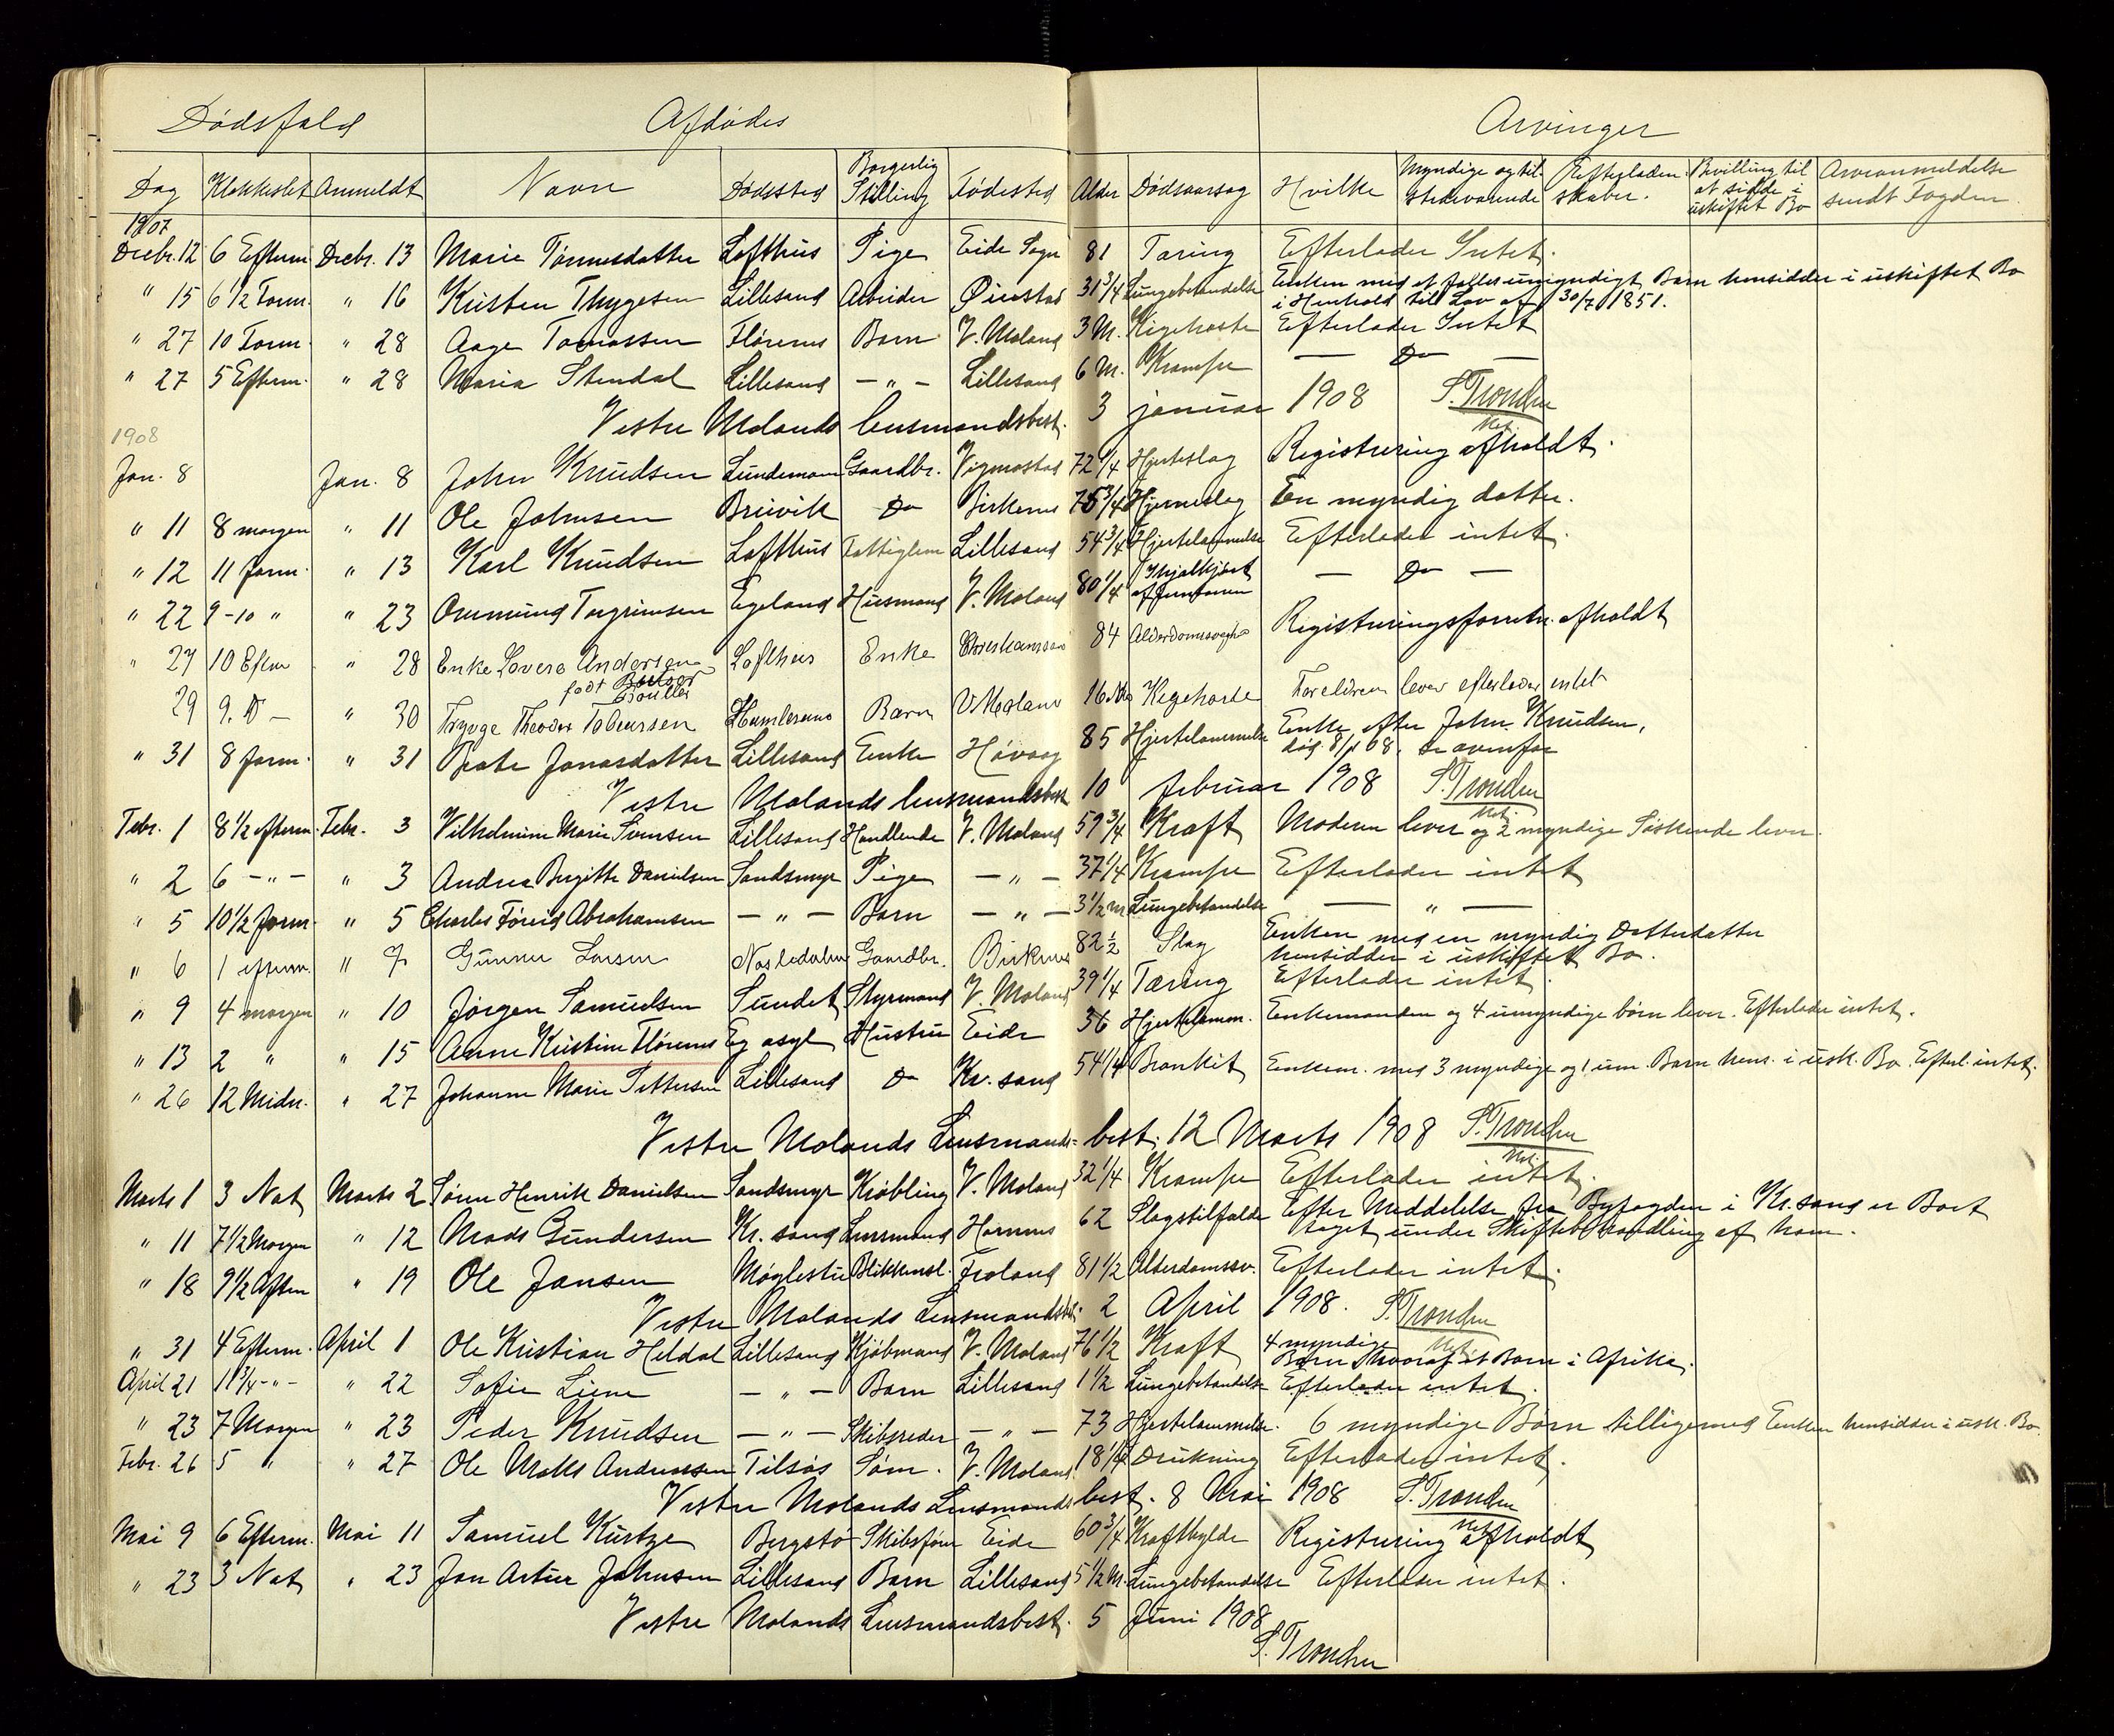 Dødsfald Afdødes Arvinger
Dag Klokkeslet Anmeldt Navn Dødssted Borgerlig Stilling Fødested Alder Dødsaarsag Hvilke Myndige og tilstedeværende Efterladenskaber. Bevilling til at sidde i uskiftet Bo Arveanmeldelse sendt Fogden
1907
Decbr. 12 6 Efterm. Decbr. 13 Marie Tønnesdatter Lofthus Pige Eide Sogn 81 Tæring Efterlader Intet.
" 15 6 1/2 Form. " 16 Kristen Thygesen Lillesand Arbeider Øiestad 31 3/4 Lungebetændelse Enken med et fælles umyndigt Barn hensidder i uskiftet Bo
i Henhold til Lov af 30/7 1851.
" 27 10 Form. " 28 Aage Tomassen Flørenes Barn V. Moland 3 M. Kigehoste Efterlader Intet
" 27 5 Efterm. " 28 Maria Stendal Lillesand — " — Lillesand 6 M. Krampe — Do —
Vestre Molands lensmandsbest. 3 januar 1908 S. Tronden
1908
Jan. 8 Jan. 8 John Knudsen Lundemoen Gaardbr. Vigmostad 72 1/4 Hjerteslag Registrering afholdt.
" 11 8 morgen " 11 Ole Johnsen Breivik Do Birkenes 75 3/4 Hjerneslag En myndig datter.
" 12 11 form. " 13 Karl Knudsen Lofthus Fattiglem Lillesand 54 3/4 Hjertelammelse Efterlader intet.
" 22 9-10 " " 23 Ommund Torgrimsen Egeland Husmand V. Moland 80 1/4 Ihjelkjørt af Jernbanen — Do —
" 27 10 Efterm " 28 Enke Lovera Andersen Lofthus Enke Christianssand 84 Alderdomssvaghed Registreringsforretn. afholdt
født Boutler
29 9. D — " 30 Trygve Theodor Tobiassen Humlesund Barn V Moland 16 Mdr Kigehoste Forældren lever efterlader intet
" 31 8 form. " 31 Beate Jonasdatter Lillesand Enke Høvaag 85 Hjertelammelse Enke efter John Knudsen,
død 8/1 08. Se ovenfor
Vestre Molands lensmandsbest. 10 februar 1908 S. Tronden
Febr. 1 8 1/2 efterm. Febr. 3 Vilhelmine Marie Svensen Lillesand Handlende V. Moland 59 3/4 Kræft Moderen lever og 2 myndige Søskende lever.
" 2 6 — " — " 3 Andrea Birgitte Danielsen Sandsmyr Pige — " — 37 1/4 Krampe Efterlader intet
" 5 10 1/2 form. " 5 Charles Føreid Abrahamsen — " — Barn — " — 3 1/2 m Lungebetændelse — " —
" 6 1 efterm. " 7 Gunner Larsen Nosledalen Gaardbr. Birkenes 82 1/2 Slag Enken med en myndig Datterdatter
hensidder i uskiftet Bo.
" 9 4 morgen " 10 Jørgen Samuelsen Sundet Styrmand V. Moland 39 1/4 Tæring Efterlader intet.
" 13 2 " " 15 Anne Kristine Flørenes Eg asyl Hustru Eide 36 Hjertelamm. Enkemanden og 4 umyndige børn lever. Efterlader intet.
" 26 12 Midn. " 27 Johanne Marie Pettersen Lillesand Do Kr. sand 54 1/4 Bronkit Enkem. med 3 myndige og 1 um. Barn hens. i usk. Bo. Efterl. intet.
Vestre Molands Lensmands- best. 12 Marts 1908 S. Tronden
Marts 1 3 Nat Marts 2 Sören Henrik Danielsen Sandsmyr Krøbling V. Moland 32 1/4 Krampe Efterlader intet.
" 11 7 1/2 Morgen " 12 Mads Gundersen Kr. sand Lensmand Hornnes 62 Slagstilfælde Efter Meddelelse fra Byfogden i Kr. sand er Boet
taget under Skiftebehandling af ham.
" 18 9 1/2 Aften " 19 Ole Jansen Møglestu Blikkensl. Froland 81 1/2 Alderdomssv. Efterlader intet.
Vestre Molands Lensmandsbest. 2 April 1908. S. Tronden
" 31 4 Efterm. April 1 Ole Kristian Heldal Lillesand Kjøbmand V. Moland 76 1/2 Kræft 4 myndige
Børn hvoraf et Barn i Afrika.
April 21 1 3/4 — " — " 22 Sofie Liene — " — Barn Lillesand 1 1/2 Lungebetændelse Efterlader intet.
" 23 7 Morgen " 23 Peder Knudsen — " — Skibsreder — " — 73 Hjertelammelse. 6 myndige Børn tilligemed Enken hensidder i usk. Bo.
Febr. 26 5 " " 27 Ole Maths Andreassen Tilsøs Søm. V. Moland 18 1/4 Drukning Efterlader intet.
Vestre Molands Lensmands best. 8 Mai 1908 S. Tronden
Mai 9 6 Efterm. Mai 11 Samuel Kurtze Bergstø Skibsfører Eide 60 3/4 Kræftbylde Registrering afholdt
" 23 3 Nat " 23 Jon Artur Johnsen Lillesand Barn Lillesand 5 1/2 M. Lungebetændelse Efterlader intet.
Vestre Molands Lensmandsbest. 5 Juni 1908
S. Tronden